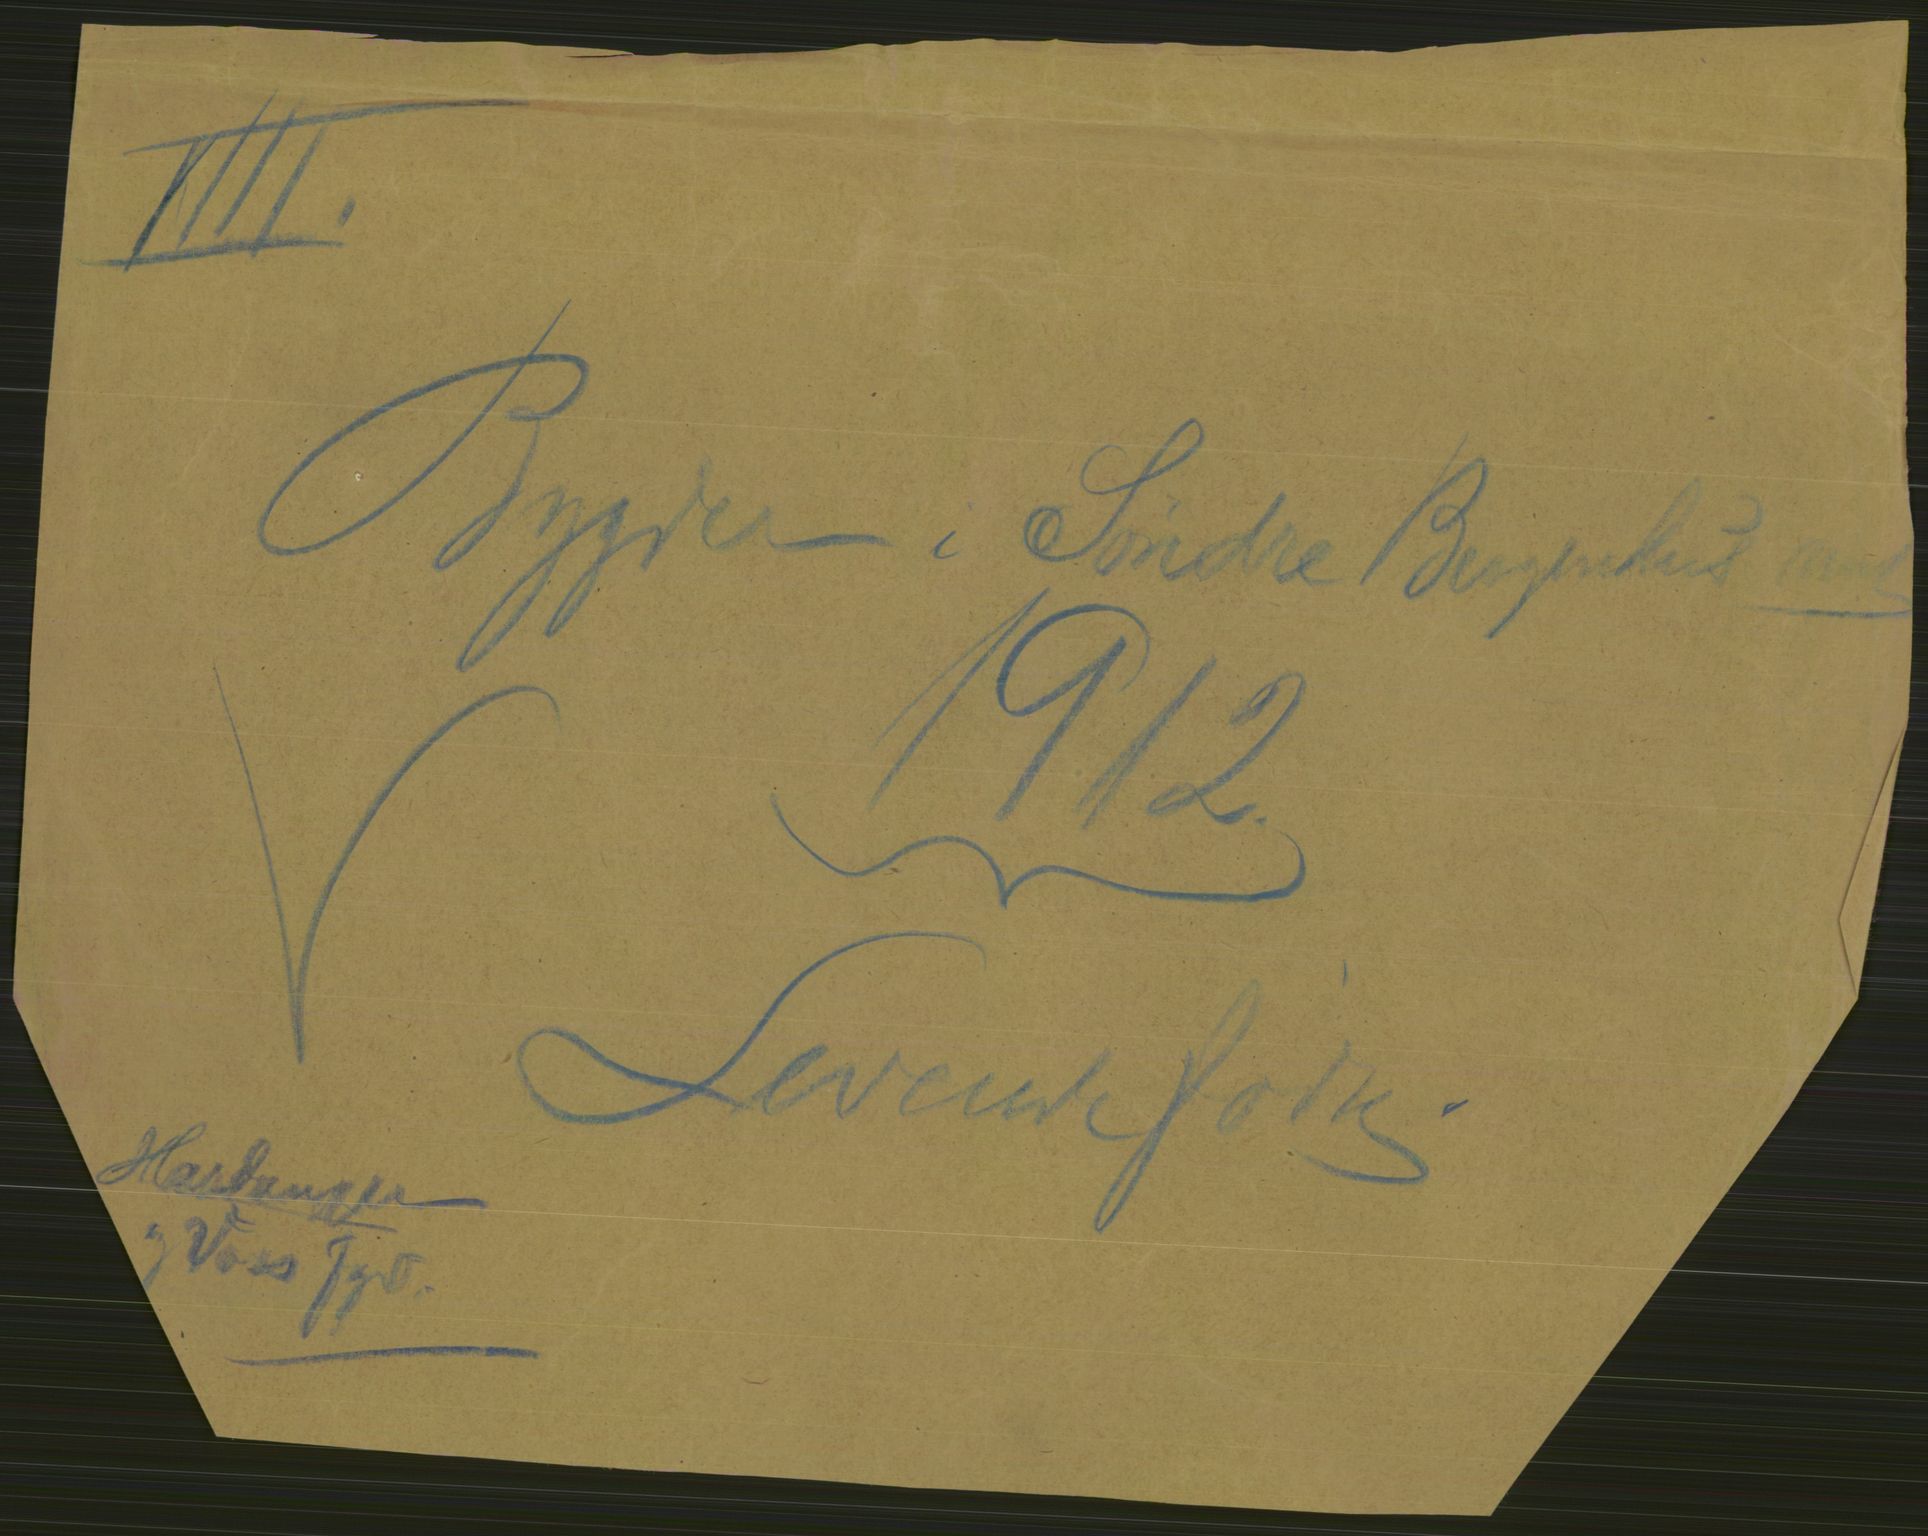 III.
Bygder i Söndre Bergenhus amt
1912.
Levendefödte.
Hardanger
g Voss Fgd.